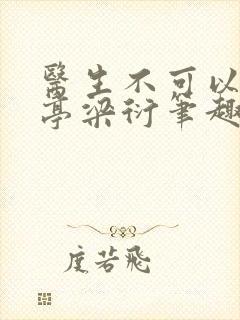 醫生不可以
亭梁衍筆趣
度若飛